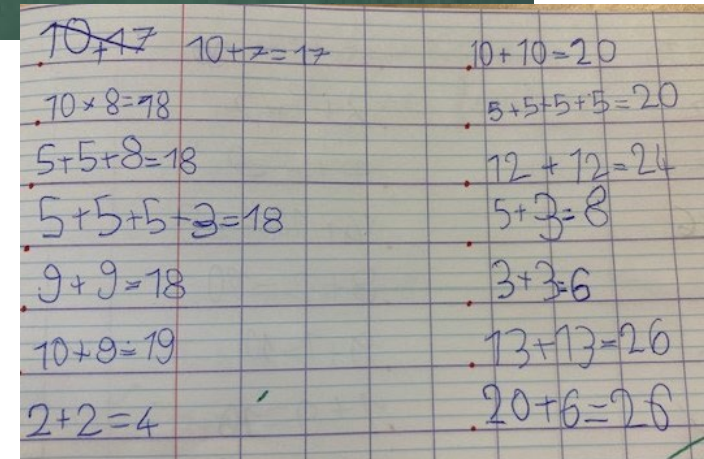 10+17 10+7=17
10×8=18
5+5+8=18
5+5+5+3=18
9+9=18
10+9=19
2+2=4
10+10=20
5+5+5+5=20
12+12=24
5+3=8
3+3=6
13+13=26
20+6=26